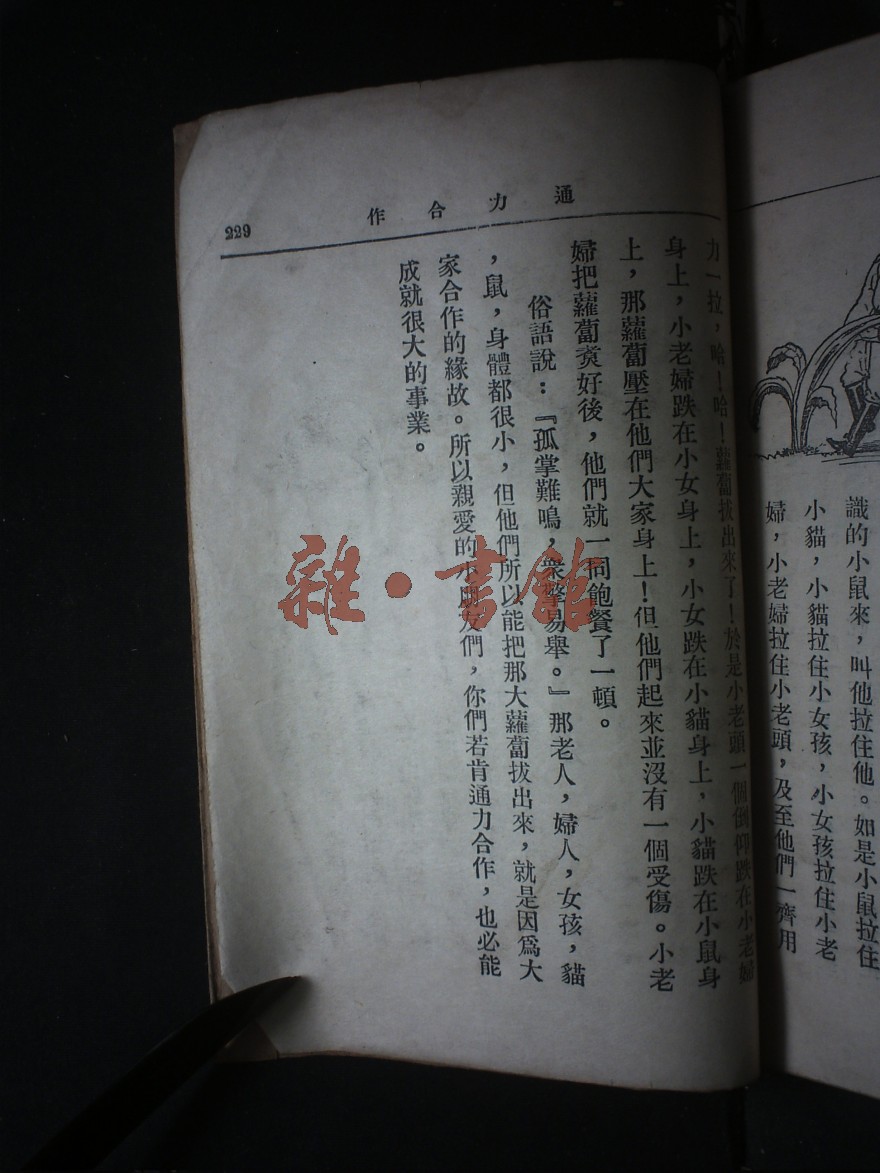 識的小鼠來，叫他拉住他。如是小鼠拉住
小貓，小貓拉住小女孩，小女孩拉住小老
婦，小老婦拉住小老頭，及至他們一齊用
通力合作
229
力一拉，哈！哈！蘿蔔拔出來了！於是小老頭一個倒仰跌在小老婦
身上，小老婦跌在小女身上，小女跌在小貓身上，小貓跌在小鼠身
上，那蘿蔔壓在他們大家身上！但他們起來並沒有一個受傷。小老
婦把蘿蔔煑好後，他們就一同飽餐了一頓。
俗語說：『孤掌難鳴，衆擎易舉。』那老人，婦人，女孩，貓
，鼠，身體都很小，但他們所以能把那大蘿蔔拔出來，就是因爲大
家合作的緣故。所以親愛的小朋友們，你們若肯通力合作，也必能
成就很大的事業。
雜·書館